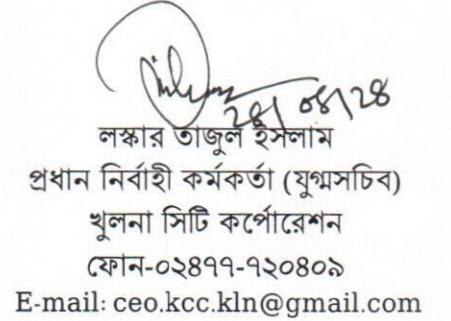 ২৪/০৪/২৪
লস্কার তাজুল ইসলাম
প্রধান নির্বাহী কর্মকর্তা (যুগ্মসচিব)
খুলনা সিটি কর্পোরেশন
ফোন-০২৪৭৭-৭২০৪০৯
E-mail: ceo.kcc.kln@gmail.com